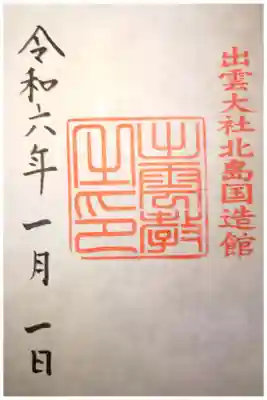 出雲大社北島国造館
出雲教之印
令和六年一月一日